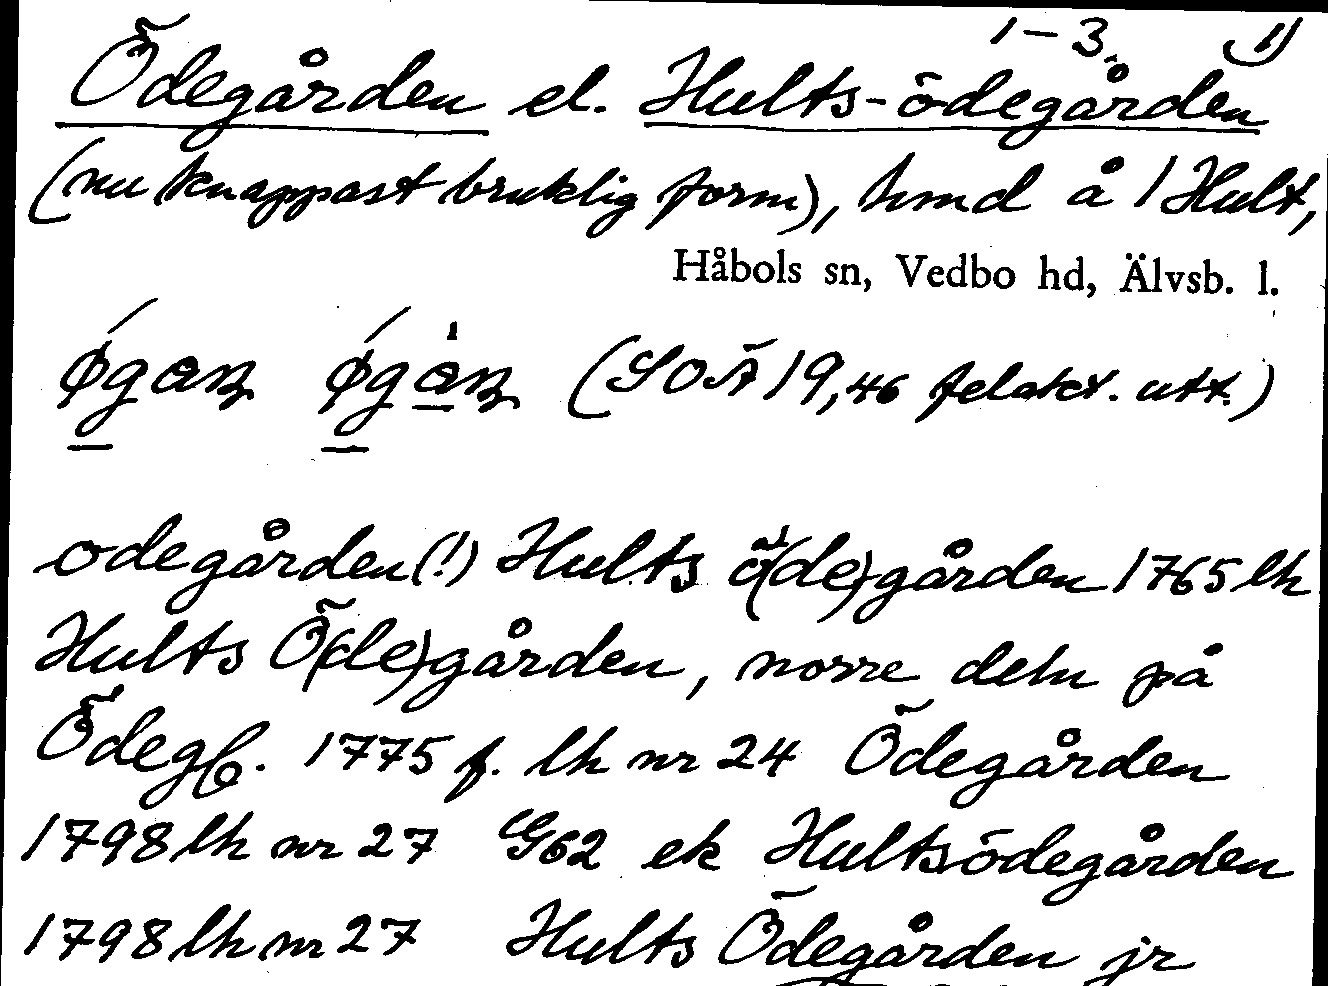 1-3. 1)
Ödegården el. Hults-ödegården
(nu knappast bruklig form), hmd å 1 Hult,
Håbols sn, Vedbo hd, Älvsb. l.
(SOÄ 19,46 felakt. utt.)
odegården(!) Hults ö(de)gården 1765 lh
Hults Ö(de)gården, norre deln på
Ödeg. 1775 f. lh nr 24 Ödegården
1798 lh nr 27 G62 ek Hultsödegården
1798 lh nr 27 Hults Ödegården jr